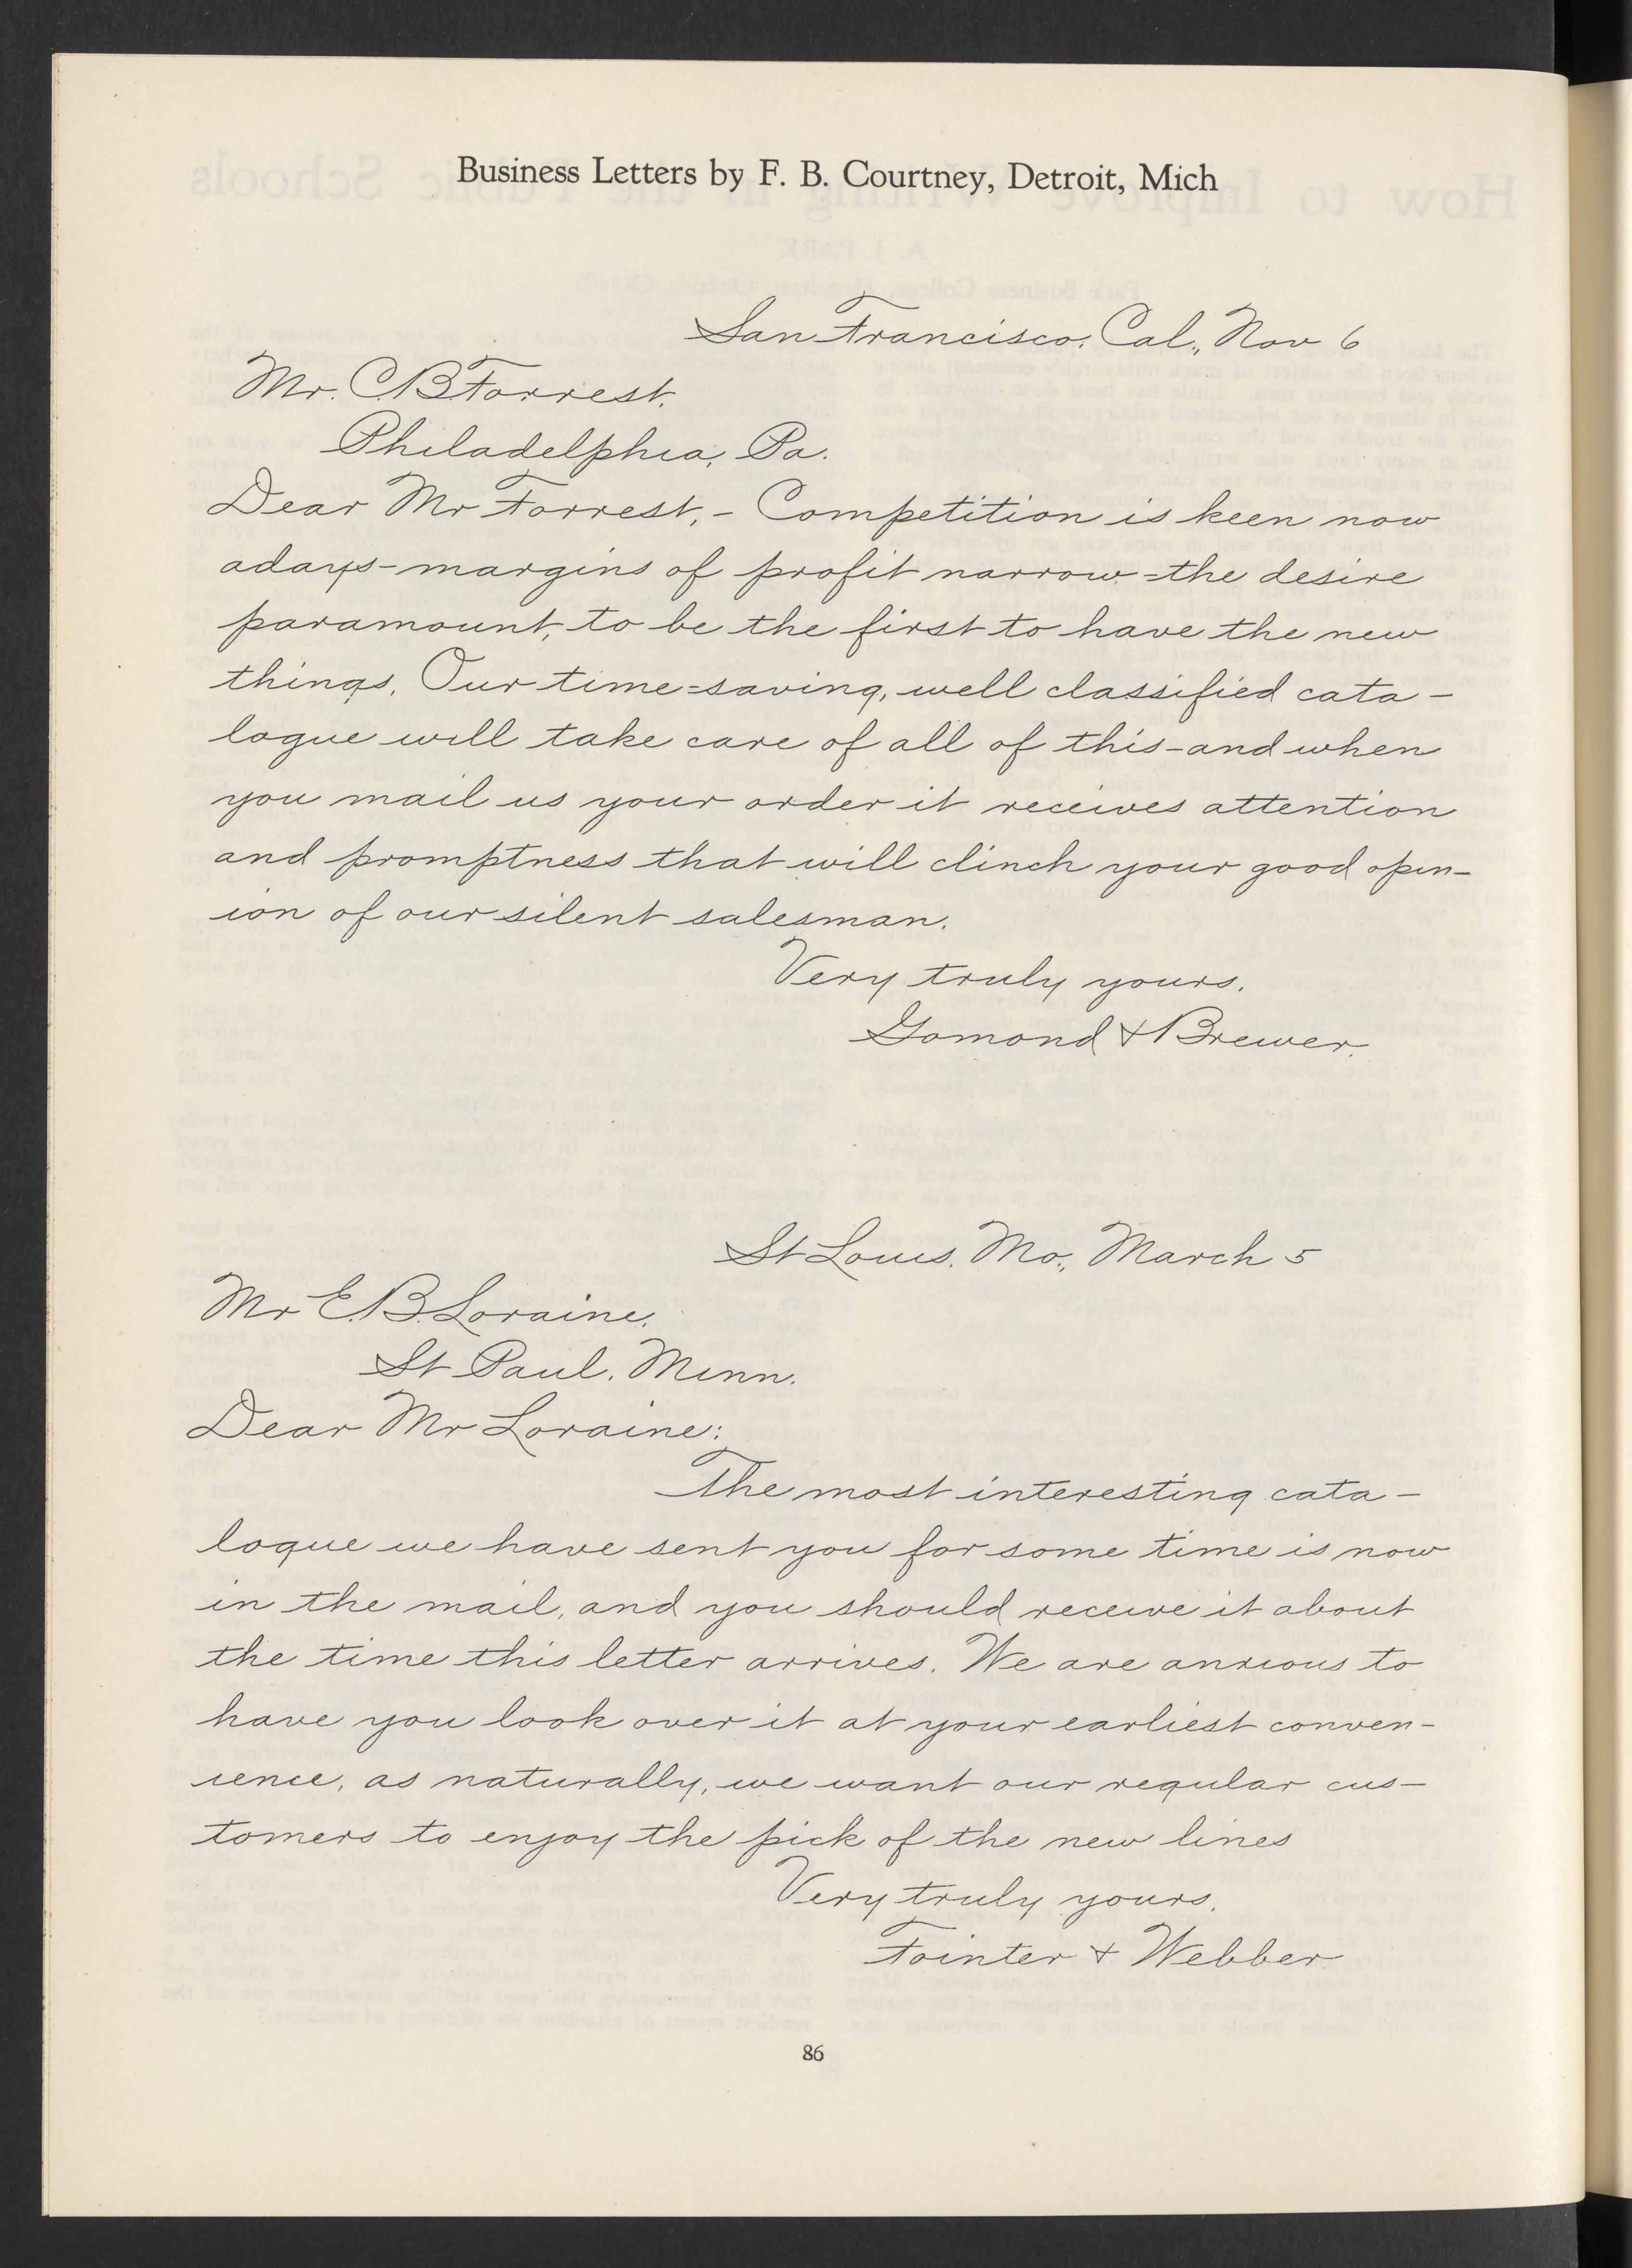 Business Letters by F. B. Courtney, Detroit, Mich
San Francisco, Cal., Nov 6
Mr. C.B. Forrest,
Philadelphia, Pa.
Dear Mr Forrest, - Competition is keen now
adays - margins of profit narrow - the desire
paramount, to be the first to have the new
things. Our time-saving, well classified cata-
logue will take care of all of this - and when
you mail us your order it receives attention
and promptness that will clinch your good opin-
ion of our silent salesman.
Very truly yours,
Gomond & Brewer.
St Louis, Mo., March 5
Mr E.B. Loraine,
St Paul, Minn.
Dear Mr Loraine:
The most interesting cata-
logue we have sent you for some time is now
in the mail, and you should receive it about
the time this letter arrives. We are anxious to
have you look over it at your earliest conven-
ience, as naturally, we want our regular cus-
tomers to enjoy the pick of the new lines
Very truly yours,
Fointer & Webber
86